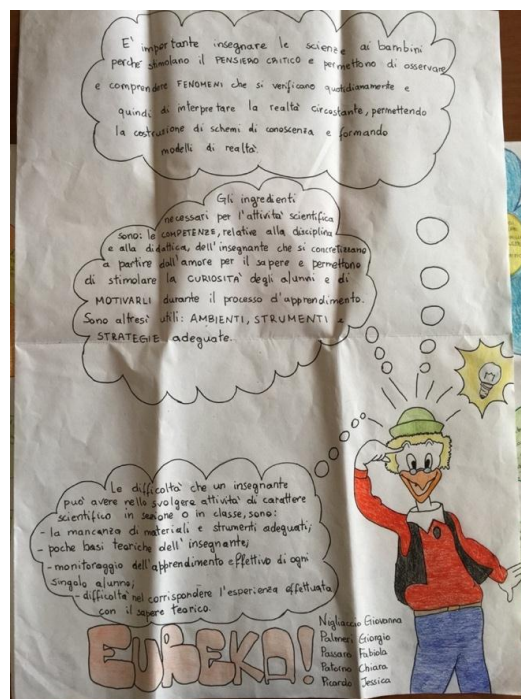 E' importante insegnare le scienze ai bambini
perché stimolano il PENSIERO CRITICO e permettono di osservare
e comprendere FENOMENI che si verificano quotidianamente e
quindi di interpretare la realtà circostante, permettendo
la costruzione di schemi di conoscenza e formando
modelli di realtà.
Gli ingredienti
necessari per l'attività scientifica
sono: le COMPETENZE, relative alla disciplina
e alla didattica, dell'insegnante che si concretizzano
a partire dall'amore per il sapere e permettono
di stimolare la CURIOSITÀ degli alunni e di
MOTIVARLI durante il processo d'apprendimento.
Sono altresì utili: AMBIENTI, STRUMENTI e
STRATEGIE adeguate.
Le difficoltà che un insegnante
può avere nello svolgere attività di carattere
scientifico in sezione o in classe, sono:
- la mancanza di materiali e strumenti adeguati;
- poche basi teoriche dell'insegnante;
- monitoraggio dell'apprendimento effettivo di ogni
singolo alunno;
- difficoltà nel corrispondere l'esperienza effettuata
con il sapere teorico.
EUREKA!
Nigliaccio Giovanna
Palmeri Giorgio
Passaro Fabiola
Patorno Chiara
Picardo Jessica